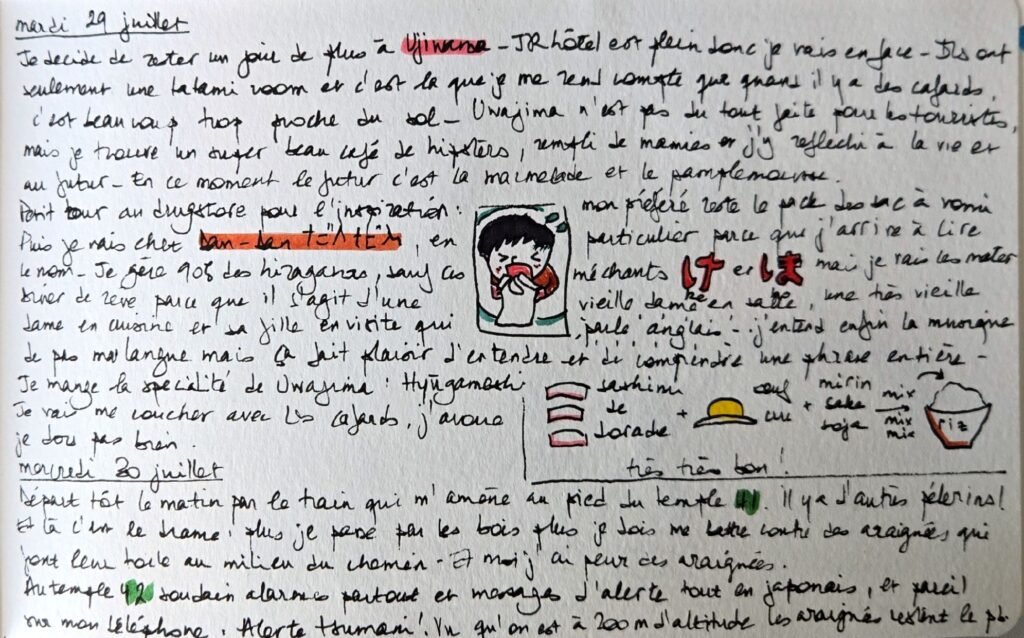 mardi 29 juillet
Je decide de rester un jour de plus à Ujiwama - JR hôtel est plein donc je vais en face - Ils ont
seulement une tatami room et c'est la que je me rend compte que quand il y a des cafards,
c'est beaucoup trop proche du sol - Uwajima n'est pas du tout faite pour les touristes,
mais je trouve un super beau café de hipsters, rempli de mamies et j'y reflechi à la vie et
au futur - En ce moment le futur c'est la marmelade et le pamplemousse.
Petit tour au drugstore pour l'inspiration : mon préféré reste le pack des sac à vomi
Puis je vais chez dan-dan, en particulier parce que j'arrive à lire
le nom - Je gère 90% des hiraganas, sauf ces méchants け er ほ mais je vais les mater
ke ho
dîner de reve parce que il s'agit d'une vieille dame en salle, une très vieille
dame en cuisine et sa fille en visite qui parle anglais - j'entend enfin la musique
de pas ma langue mais ça fait plaisir d'entendre et de comprendre une phrase entière -
Je mange la spécialité de Uwajima : Hyūgameshi
Je vais me coucher avec les cafards, j'avoue
je dors pas bien.
sashimi
de
dorade
+
oeuf
cru
+
mirin
sake
soja
mix
mix
mix
riz
très très bon !
mercredi 30 juillet
Départ tôt le matin par le train qui m'amène au pied du temple 41. Il y a d'autres pélerins !
Et là c'est le drame : plus je passe par les bois plus je dois me battre contre des araignées qui
font leur toile au milieu du chemin - Et moi j'ai peur des araignées.
Au temple 42 soudain alarmes partout et messages d'alerte tout en japonais, et pareil
sur mon téléphone. Alerte tsunami ! Vu qu'on est à 200 m d'altitude les araignées restent le pb